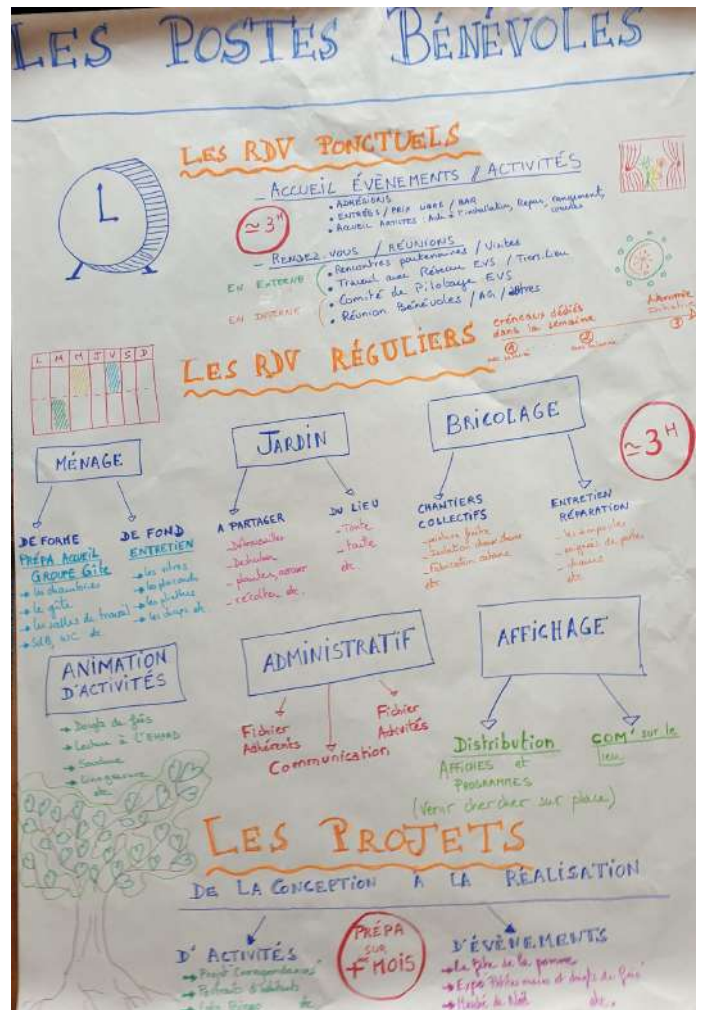 LES POSTES BÉNÉVOLES
LES RDV PONCTUELS
- ACCUEIL ÉVÈNEMENTS / ACTIVITÉS
≃ 3H
• ADHÉSIONS
• ENTRÉES / PRIX LIBRE / BAR
• ACCUEIL ARTISTES : Aide à l'installation, Repas, rangement,
- RENDEZ-VOUS / RÉUNIONS
EN EXTERNE
• Rencontres partenaires / Visites
• Travail avec Réseau EVS / Tiers-Lieu
EN INTERNE
• Comité de Pilotage EVS
• Réunion Bénévoles / AG /
LES RDV RÉGULIERS
créneaux dédiés
dans la semaine
① ② ③
L M M J V S D
≃ 3H
MÉNAGE
DE FORME
PRÉPA ACCUEIL
GROUPE Gîte
→ les chambres
→ le gîte
→ les salles de travail
→ SdB, WC etc
DE FOND
ENTRETIEN
→ les vitres
→ les placards
→ les plinthes
→ les draps etc
JARDIN
A PARTAGER
- Désherber
- planter, arroser
- récolter etc.
DU LIEU
- Tonte
- taille
etc
BRICOLAGE
CHANTIERS
COLLECTIFS
- Fabrication cabane
etc
ENTRETIEN
RÉPARATION
- les ampoules
- poignées de portes
- chaises
etc
ANIMATION
D'ACTIVITÉS
→ Doigts de fées
→ Lecture à L'EHPAD
→ Couture
etc
ADMINISTRATIF
Fichier
Adhérents
Communication
Fichier
Activités
AFFICHAGE
Distribution
AFFICHES et
PROGRAMMES
(Venir chercher sur place)
COM' sur le
lieu
LES PROJETS
DE LA CONCEPTION À LA RÉALISATION
D'ACTIVITÉS
→ Projet Correspondances
→ Portraits d'habitants
→ Loto Bingo etc
PRÉPA
SUR
MOIS
D'ÉVÈNEMENTS
→ La Fête de la pomme
→ Expo Petites mains et doigts de fées
→ Marché de Noël etc.